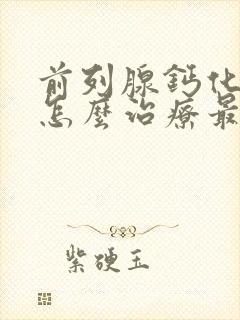 前列腺鈣化
怎麼治療最
紫硬玉